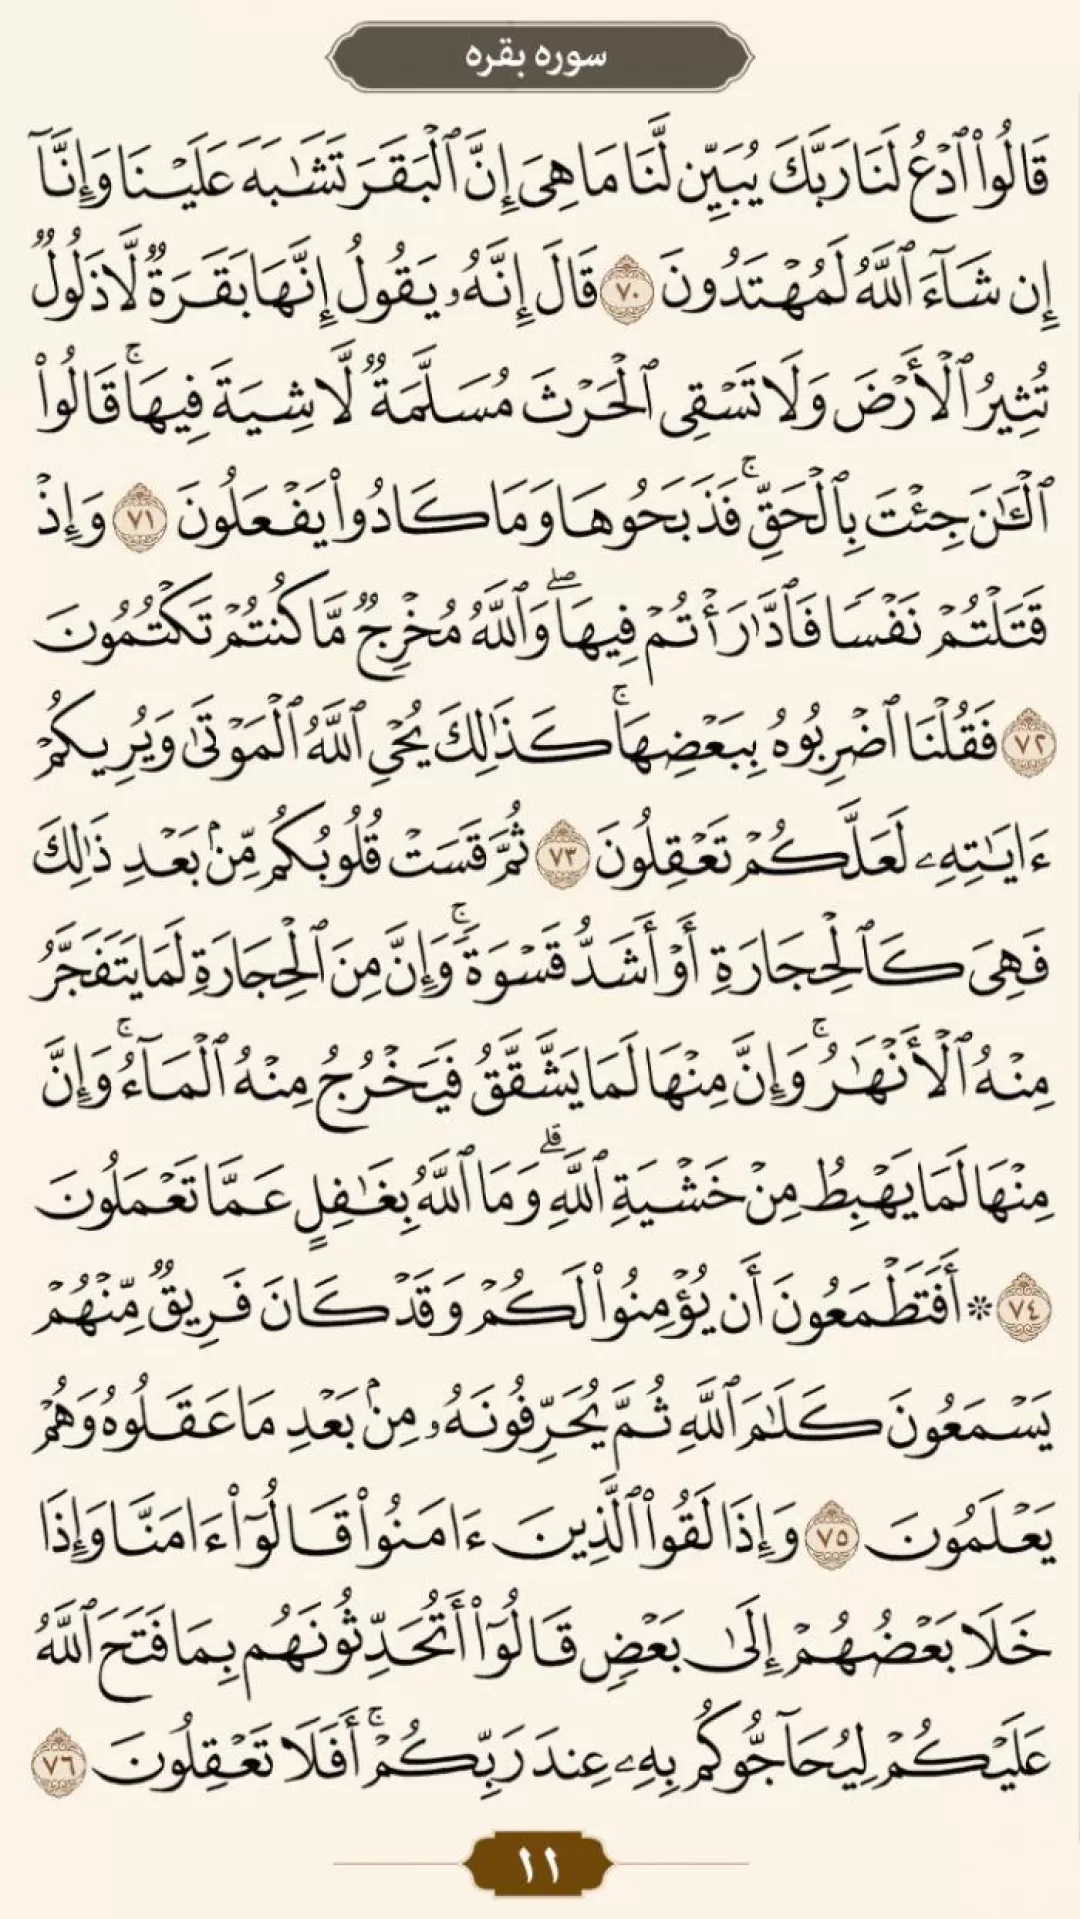 سوره بقره
قَالُوا۟ ٱدْعُ لَنَا رَبَّكَ يُبَيِّن لَّنَا مَا هِىَ إِنَّ ٱلْبَقَرَ تَشَـٰبَهَ عَلَيْنَا وَإِنَّآ
إِن شَآءَ ٱللَّهُ لَمُهْتَدُونَ ٧٠ قَالَ إِنَّهُۥ يَقُولُ إِنَّهَا بَقَرَةٌ لَّا ذَلُولٌ
تُثِيرُ ٱلْأَرْضَ وَلَا تَسْقِى ٱلْحَرْثَ مُسَلَّمَةٌ لَّا شِيَةَ فِيهَا ۚ قَالُوا۟
ٱلْـَٔـٰنَ جِئْتَ بِٱلْحَقِّ ۚ فَذَبَحُوهَا وَمَا كَادُوا۟ يَفْعَلُونَ ٧١ وَإِذْ
قَتَلْتُمْ نَفْسًا فَٱدَّٰرَْٰٔتُمْ فِيهَا ۖ وَٱللَّهُ مُخْرِجٌ مَّا كُنتُمْ تَكْتُمُونَ
٧٢ فَقُلْنَا ٱضْرِبُوهُ بِبَعْضِهَا ۚ كَذَٰلِكَ يُحْىِ ٱللَّهُ ٱلْمَوْتَىٰ وَيُرِيكُمْ
ءَايَـٰتِهِۦ لَعَلَّكُمْ تَعْقِلُونَ ٧٣ ثُمَّ قَسَتْ قُلُوبُكُم مِّنۢ بَعْدِ ذَٰلِكَ
فَهِىَ كَٱلْحِجَارَةِ أَوْ أَشَدُّ قَسْوَةً ۚ وَإِنَّ مِنَ ٱلْحِجَارَةِ لَمَا يَتَفَجَّرُ
مِنْهُ ٱلْأَنْهَـٰرُ ۚ وَإِنَّ مِنْهَا لَمَا يَشَّقَّقُ فَيَخْرُجُ مِنْهُ ٱلْمَآءُ ۚ وَإِنَّ
مِنْهَا لَمَا يَهْبِطُ مِنْ خَشْيَةِ ٱللَّهِ ۗ وَمَا ٱللَّهُ بِغَـٰفِلٍ عَمَّا تَعْمَلُونَ
٧٤ * أَفَتَطْمَعُونَ أَن يُؤْمِنُوا۟ لَكُمْ وَقَدْ كَانَ فَرِيقٌ مِّنْهُمْ
يَسْمَعُونَ كَلَـٰمَ ٱللَّهِ ثُمَّ يُحَرِّفُونَهُۥ مِنۢ بَعْدِ مَا عَقَلُوهُ وَهُمْ
يَعْلَمُونَ ٧٥ وَإِذَا لَقُوا۟ ٱلَّذِينَ ءَامَنُوا۟ قَالُوٓا۟ ءَامَنَّا وَإِذَا
خَلَا بَعْضُهُمْ إِلَىٰ بَعْضٍ قَالُوٓا۟ أَتُحَدِّثُونَهُم بِمَا فَتَحَ ٱللَّهُ
عَلَيْكُمْ لِيُحَآجُّوكُم بِهِۦ عِندَ رَبِّكُمْ ۚ أَفَلَا تَعْقِلُونَ ٧٦
١١